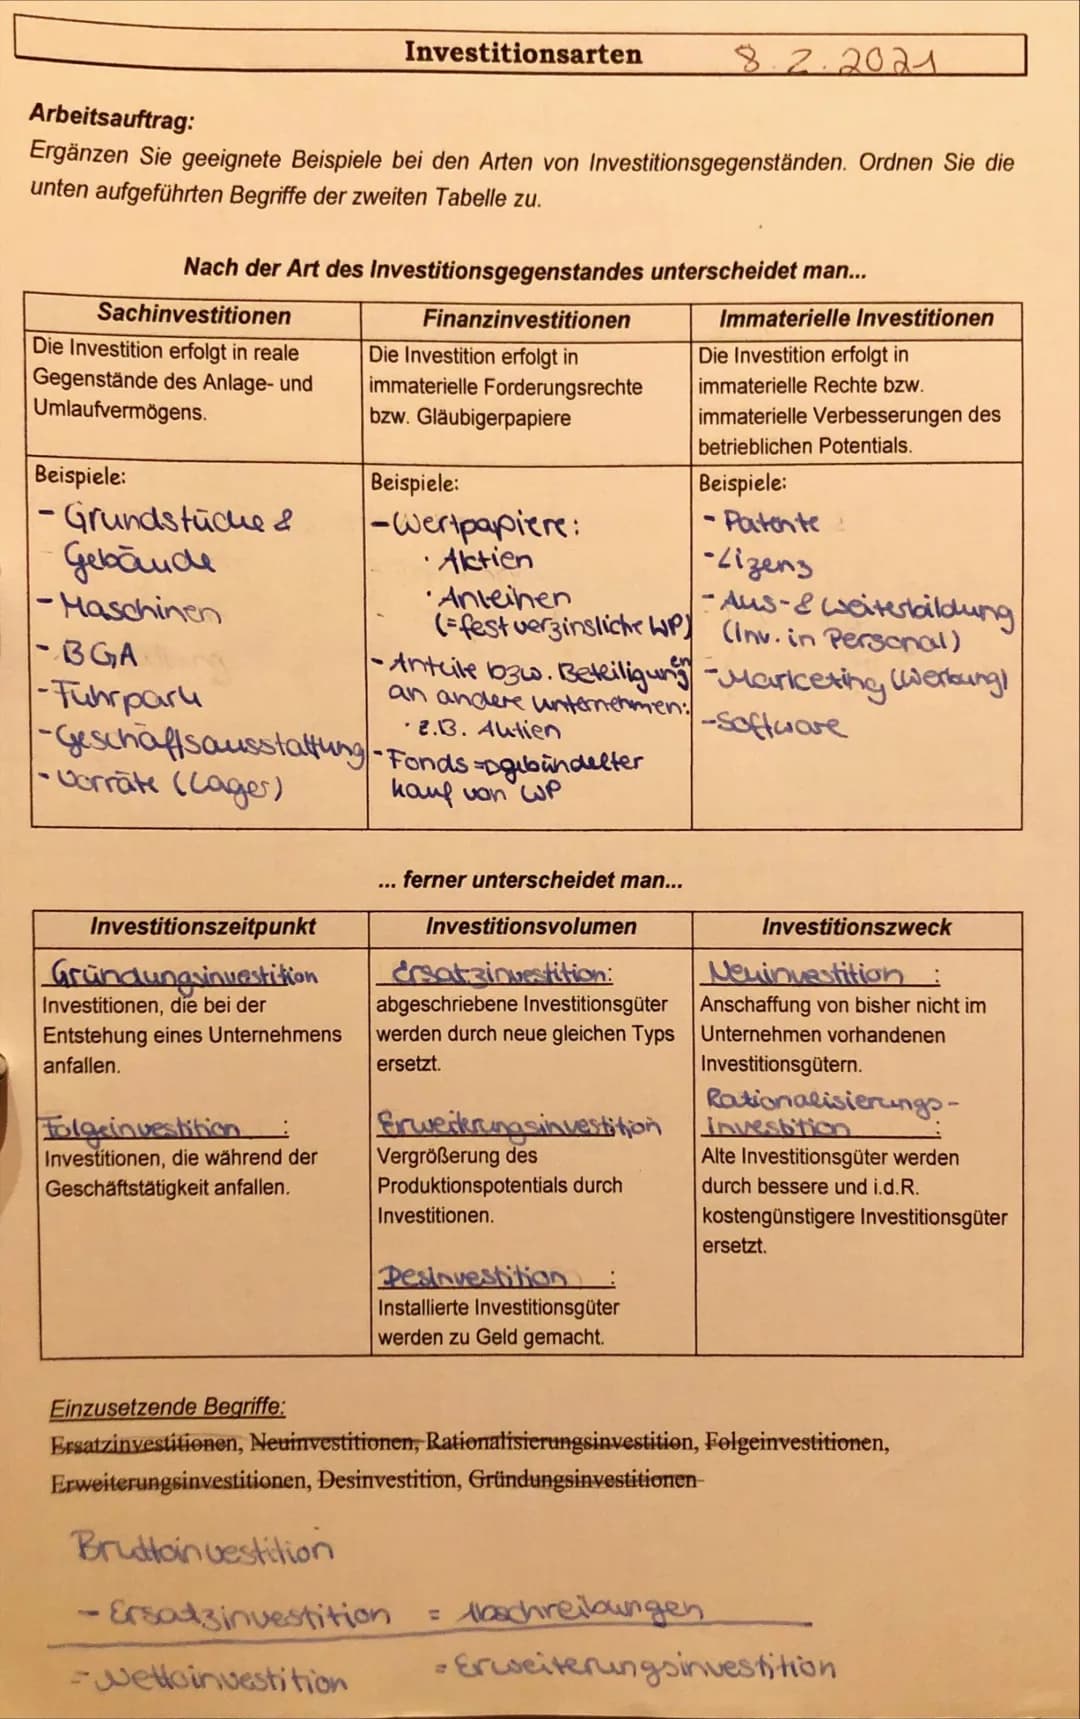 Investitionsarten 8.2.2021
Arbeitsauftrag:
Ergänzen Sie geeignete Beispiele bei den Arten von Investitionsgegenständen. Ordnen Sie die
unten aufgeführten Begriffe der zweiten Tabelle zu.
Nach der Art des Investitionsgegenstandes unterscheidet man...
Sachinvestitionen
Die Investition erfolgt in reale
Gegenstände des Anlage- und
Umlaufvermögens.
Beispiele:
- Grundstücke &
Gebäude
- Maschinen
- BGA
- Fuhrpark
- Geschäftsausstattung
- Vorräte (Lager)
Finanzinvestitionen
Die Investition erfolgt in
immaterielle Forderungsrechte
bzw. Gläubigerpapiere
Beispiele:
- Wertpapiere:
· Aktien
· Anleihen
(= festverzinsliche WP)
- Anteile bzw. Beteiligungen
an andere Unternehmen:
· z.B. Aktien
- Fonds => gebündelter
Kauf von WP
Immaterielle Investitionen
Die Investition erfolgt in
immaterielle Rechte bzw.
immaterielle Verbesserungen des
betrieblichen Potentials.
Beispiele:
- Patente
- Lizenz
- Aus- & Weiterbildung
(Inv. in Personal)
- Marketing (Werbung)
- Software
... ferner unterscheidet man...
Investitionszeitpunkt
Gründungsinvestition
Investitionen, die bei der
Entstehung eines Unternehmens
anfallen.
Folgeinvestition :
Investitionen, die während der
Geschäftstätigkeit anfallen.
Investitionsvolumen
Ersatzinvestition:
abgeschriebene Investitionsgüter
werden durch neue gleichen Typs
ersetzt.
Erweiterungsinvestition
Vergrößerung des
Produktionspotentials durch
Investitionen.
Desinvestition :
Installierte Investitionsgüter
werden zu Geld gemacht.
Investitionszweck
Neuinvestition :
Anschaffung von bisher nicht im
Unternehmen vorhandenen
Investitionsgütern.
Rationalisierungs-
investition :
Alte Investitionsgüter werden
durch bessere und i.d.R.
kostengünstigere Investitionsgüter
ersetzt.
Einzusetzende Begriffe:
Ersatzinvestitionen, Neuinvestitionen, Rationalisierungsinvestition, Folgeinvestitionen,
Erweiterungsinvestitionen, Desinvestition, Gründungsinvestitionen
Bruttoinvestition
- Ersatzinvestition = Abschreibungen
= Nettoinvestition = Erweiterungsinvestition